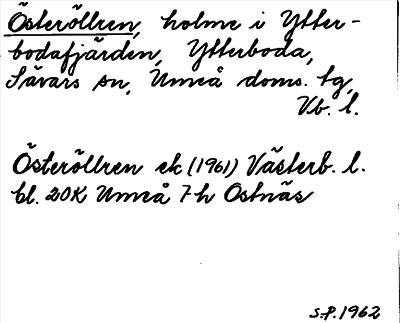 Österöllren, holme i Ytter-
bodafjärden, Ytterboda,
Sävars sn, Umeå doms. tg,
Vb. l.
Österöllren ek (1961) Västerb. l.
bl. 20K Umeå 7h Ostnäs
S.P. 1962